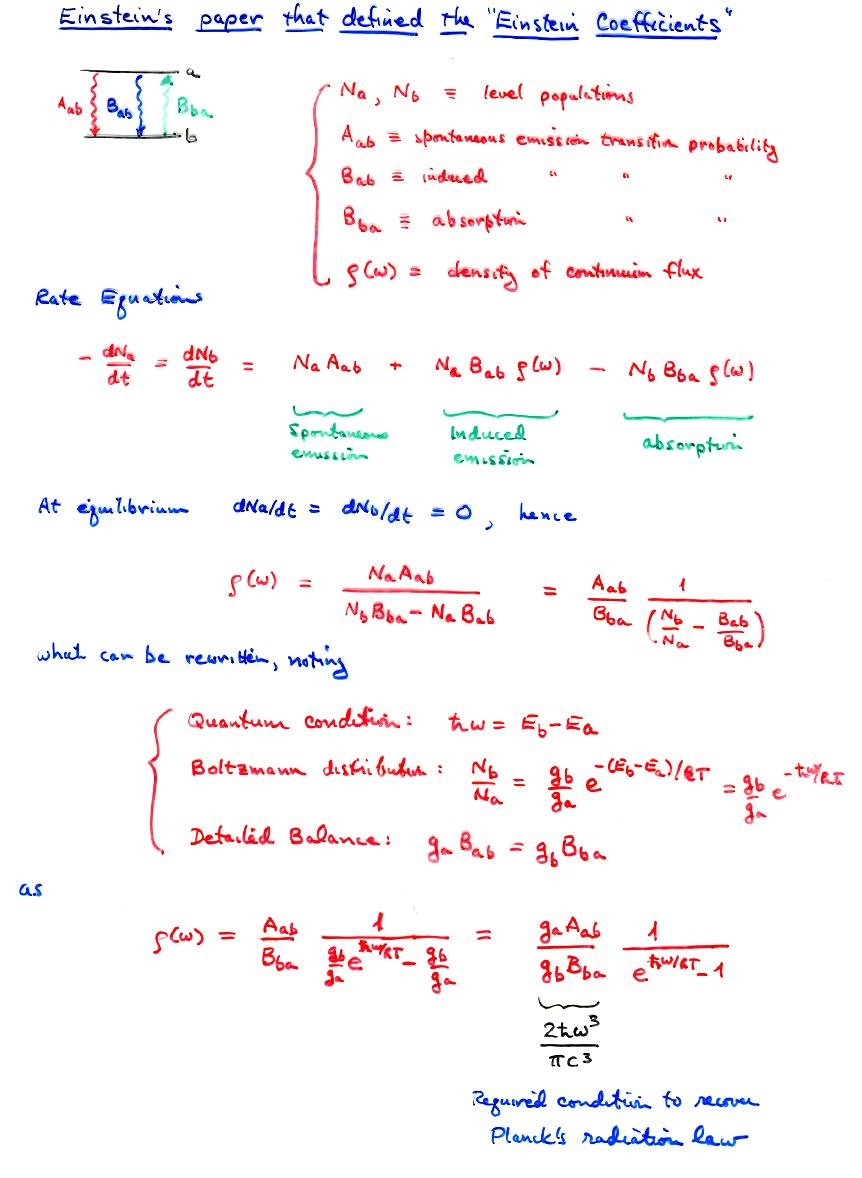 Einstein's paper that defined the "Einstein Coefficients"
a
Aab Bab Bba
b
Na, Nb ≡ level populations
Aab ≡ spontaneous emission transition probability
Bab ≡ induced " " "
Bba ≡ absorption " "
ρ(ω) ≡ density of continuum flux
Rate Equations
- dNa/dt = dNb/dt = Na Aab + Na Bab ρ(ω) - Nb Bba ρ(ω)
Spontaneous emission
Induced emission
absorption
At equilibrium dNa/dt = dNb/dt = 0, hence
ρ(ω) = Na Aab / (Nb Bba - Na Bab) = Aab/Bba 1/(Nb/Na - Bab/Bba)
what can be rewritten, noting
Quantum condition: ħω = Eb-Ea
Boltzmann distribution: Nb/Na = gb/ga e^-(Eb-Ea)/kT = gb/ga e^-ħω/kT
Detailed Balance: ga Bab = gb Bba
as
ρ(ω) = Aab/Bba 1/(gb/ga e^ħω/kT - gb/ga) = ga Aab/gb Bba 1/(e^ħω/kT - 1)
2ħω^3/πc^3
Required condition to recover
Planck's radiation law